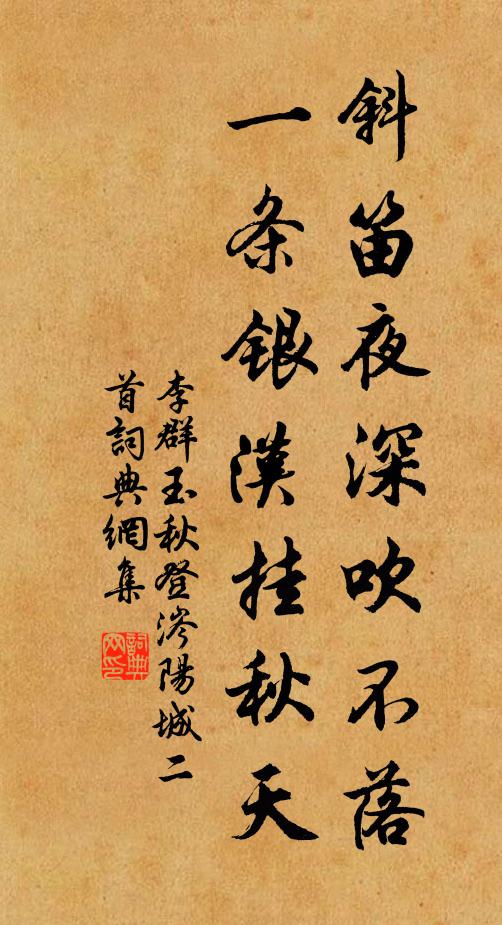 斜笛夜深吹不落
一条銀漢挂秋天
李群玉秋登涔陽城二
首詞典網集
詞典網印